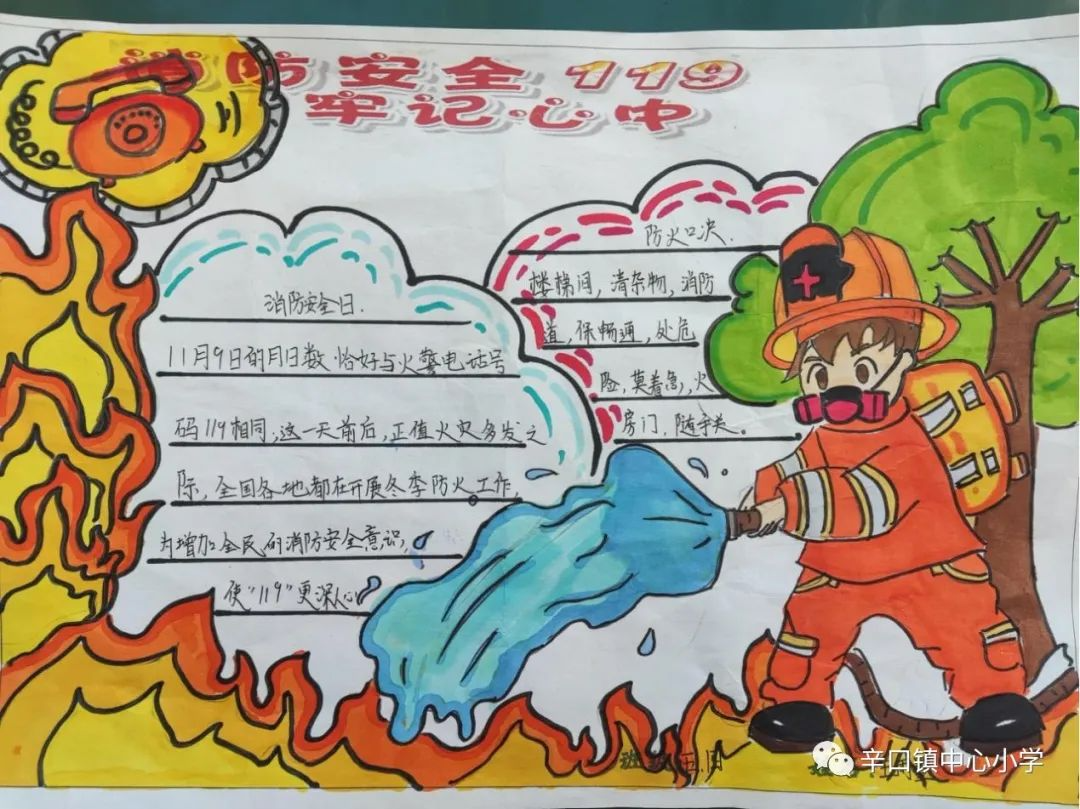 消防安全119
牢记心中
消防安全日.
11月9日的月日数恰好与火警电话号
码119相同,这一天前后,正值火灾多发之
际,全国各地都在开展冬季防火工作,
为增加全民的消防安全意识,
使"119"更深入心
防火口决.
楼梯间,清杂物,消防
道,保畅通,处危
险,莫着急,火
房门,随手关。
班级
辛口镇中心小学